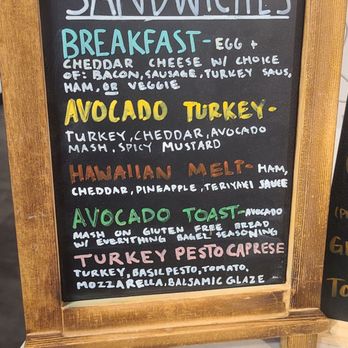 SANDWICHES
BREAKFAST- EGG +
CHEDDAR CHEESE W/ CHOICE
OF: BACON, SAUSAGE, TURKEY SAUS,
HAM, OR VEGGIE
AVOCADO TURKEY-
TURKEY, CHEDDAR, AVOCADO
MASH, SPICY MUSTARD
HAWAIIAN MELT- HAM,
CHEDDAR, PINEAPPLE, TERIYAKI SAUCE
AVOCADO TOAST- AVOCADO
MASH ON GLUTEN FREE BREAD
W/ EVERYTHING BAGEL SEASONING
TURKEY PESTO CAPRESE
TURKEY, BASIL PESTO, TOMATO,
MOZZARELLA, BALSAMIC GLAZE